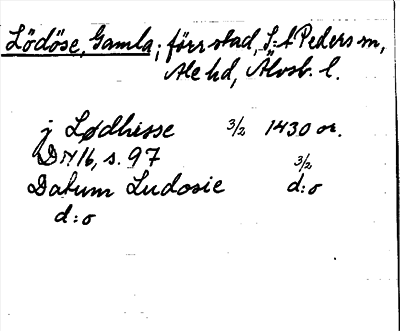 Lödöse, Gamla; förr stad, S:t Peders sn,
Ale hd, Älvsb. l.
j Lødhisse 3/2 1430 or.
DN 16, s. 97 3/2
Datum Ludosie d:o
d:o